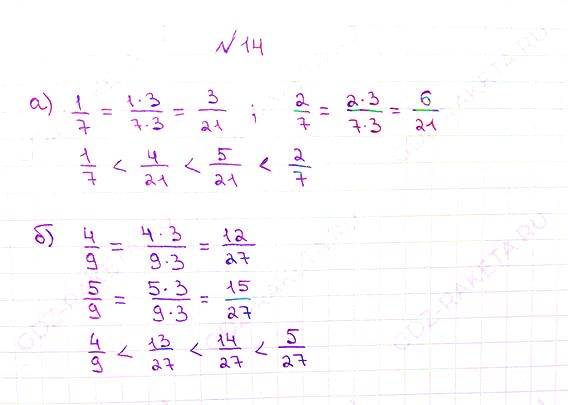 № 14
а) 1/7 = 1·3/7·3 = 3/21 ; 2/7 = 2·3/7·3 = 6/21
1/7 < 4/21 < 5/21 < 2/7
б) 4/9 = 4·3/9·3 = 12/27
5/9 = 5·3/9·3 = 15/27
4/9 < 13/27 < 14/27 < 5/27
GDZ-RAKETA.RU
GDZ-RAKETA.RU
GDZ-RAKETA.RU
GDZ-RAKETA.RU